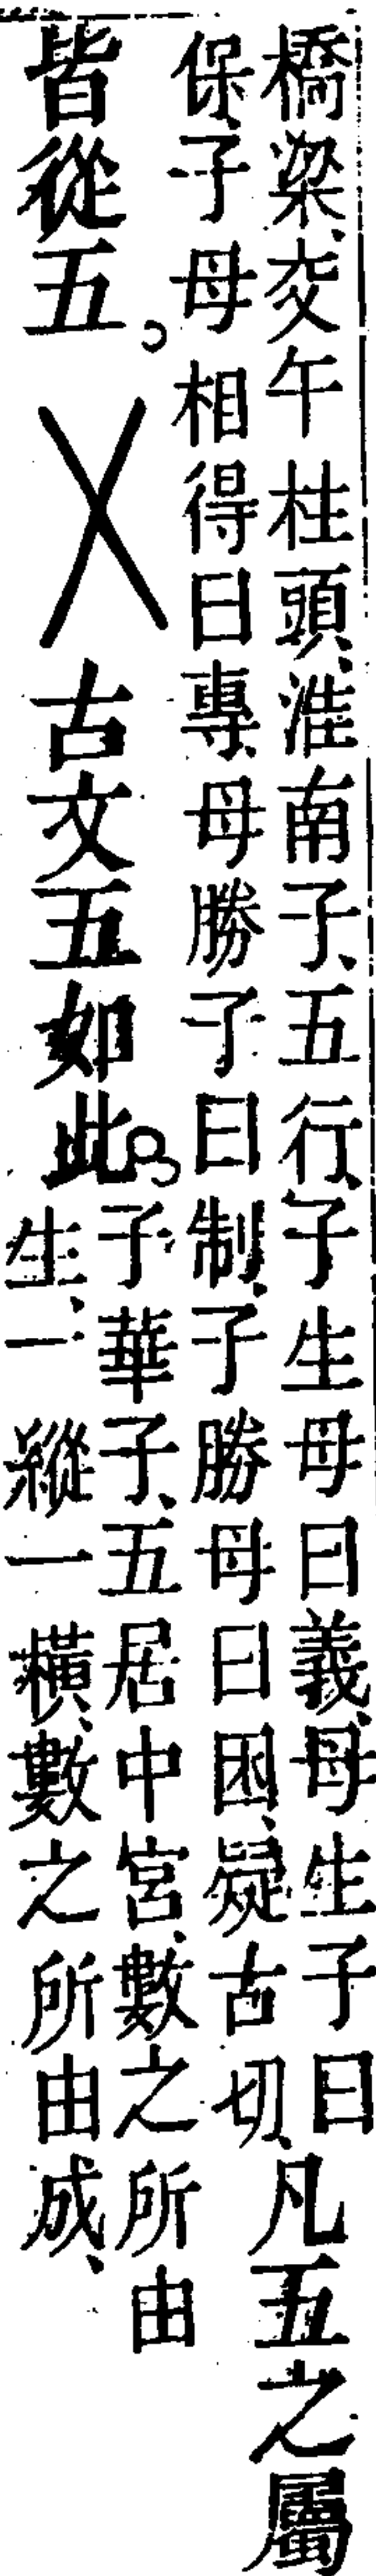 橋梁、交午柱頭、淮南子、五行、子生母曰義、母生子曰
保、子母相得曰專、母勝子曰制、子勝母曰困、疑古切、
凡五之屬
皆從五。
㐅古文五如此。
子華子、五居中宮、數之所由
生、一縱一橫、數之所由成、